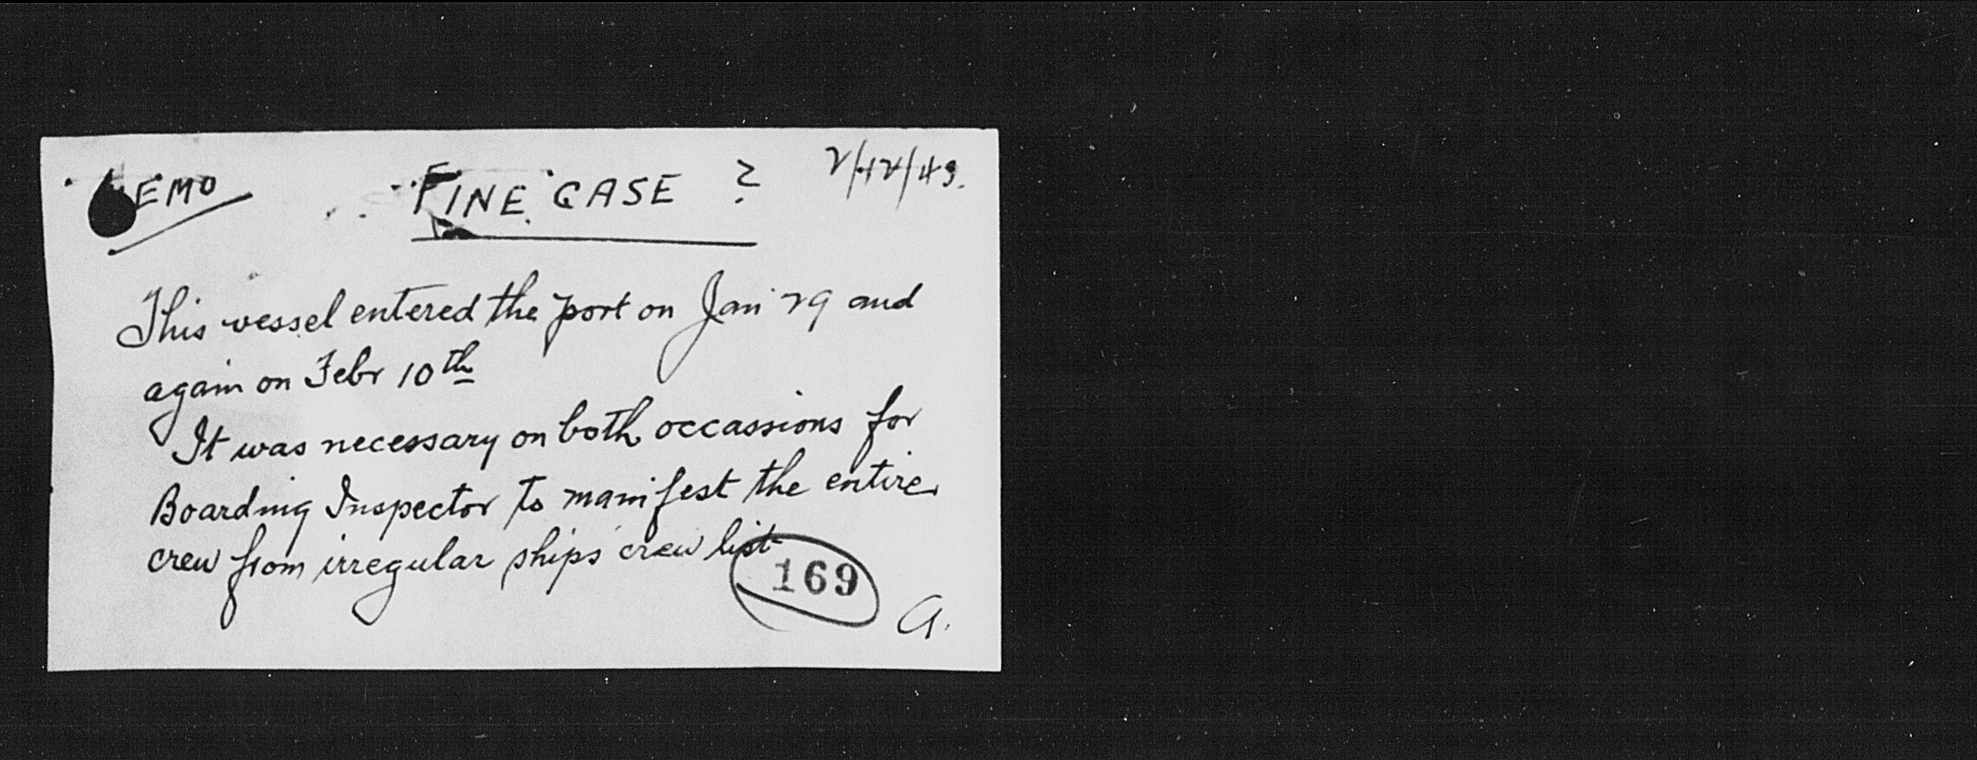 MEMO FINE CASE ? 2/12/43.
This vessel entered the port on Jan 29 and
again on Febr 10th
It was necessary on both occassions for
Boarding Inspector to manifest the entire
crew from irregular ships' crew list
169
A.